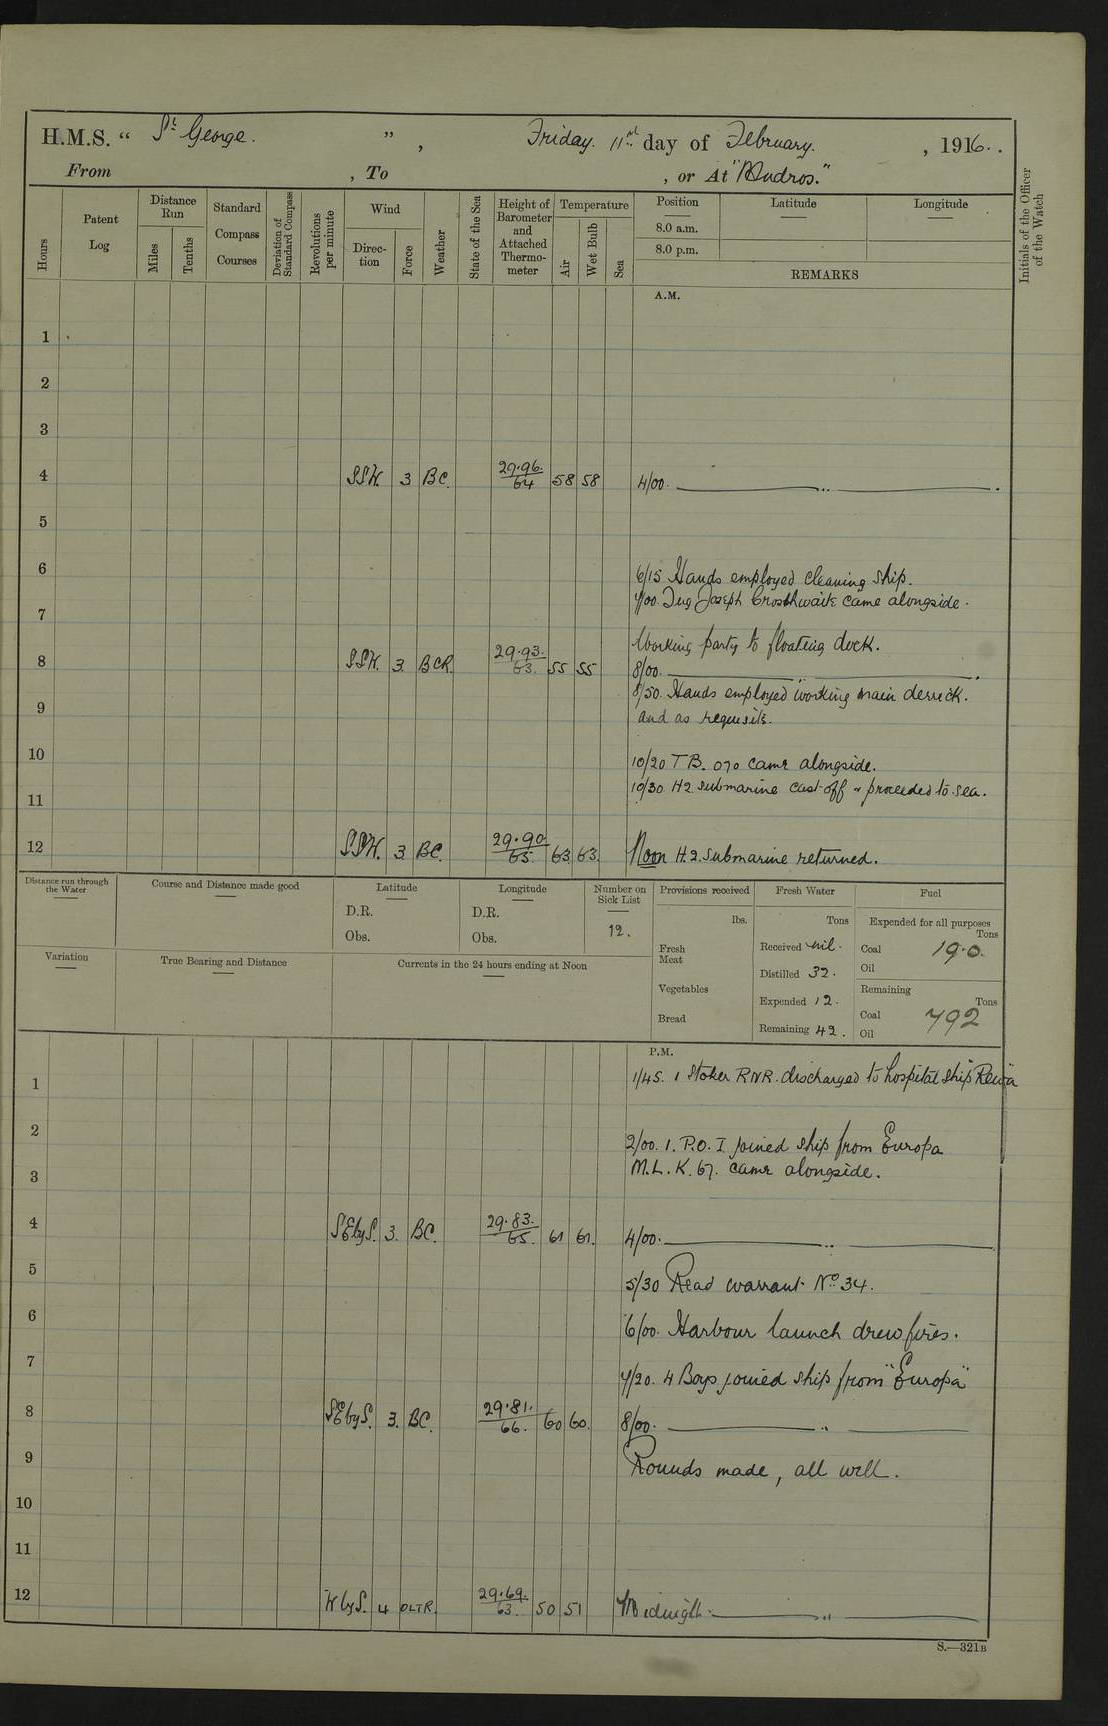 H.M.S. “ St George. ” , Friday. 11th day of February. , 1916.
From , To , or At "Mudros."
Hours
Patent Log
Distance Run
Miles
Tenths
Standard Compass Courses
Deviation of Standard Compass
Revolutions per minute
Wind
Direction
Force
Weather
State of the Sea
Height of Barometer and Attached Thermometer
Temperature
Air
Wet Bulb
Sea
Position
Latitude
Longitude
8.0 a.m.
8.0 p.m.
REMARKS
Initials of the Officer of the Watch
A.M.
1
2
3
4 SSW. 3 BC. 29.96. 64 58 58 4/00. „ .
5
6 6/15 Hands employed cleaning ship.
7/00. Tug Joseph Crosthwaite came alongside.
7
Working party to floating dock.
8 SSW. 3. BCR. 29.93. 63. 55 55 8/00. „ .
8/50. Hands employed working main derrick.
9 and as requisite.
10 10/20 T.B. 070 came alongside.
10/30 H2 submarine cast off & proceeded to sea.
11
12 SSW. 3. BC. 29.90. 65. 63. 63. Noon H.2. submarine returned.
Distance run through the Water
Course and Distance made good
Latitude
D.R.
Obs.
Longitude
D.R.
Obs.
Number on Sick List
12.
Provisions received
lbs.
Fresh Meat
Vegetables
Bread
Fresh Water
Tons
Received nil.
Distilled 32.
Expended 12.
Remaining 42.
Fuel
Expended for all purposes
Tons
Coal 19.0.
Oil
Remaining
Tons
Coal 792
Oil
Variation
True Bearing and Distance
Currents in the 24 hours ending at Noon
P.M.
1 1/45. 1 Stoker RNR. discharged to hospital ship Rewa
2 2/00. 1. P.O. I joined ship from Europa
M.L. K. 67. came alongside.
3
4 SEbyS. 3. BC. 29.83. 65. 61 61. 4/00. „
5 5/30 Read warrant No 34.
6 6/00. Harbour launch drew fires.
7 7/20. 4 Boys joined ship from "Europa"
8 SEbyS. 3. BC. 29.81. 66. 60 60. 8/00. „
9 Rounds made, all well.
10
11
12 WbyS. 4 OLTR. 29.69. 63. 50 51 Midnight. „
S.—321B